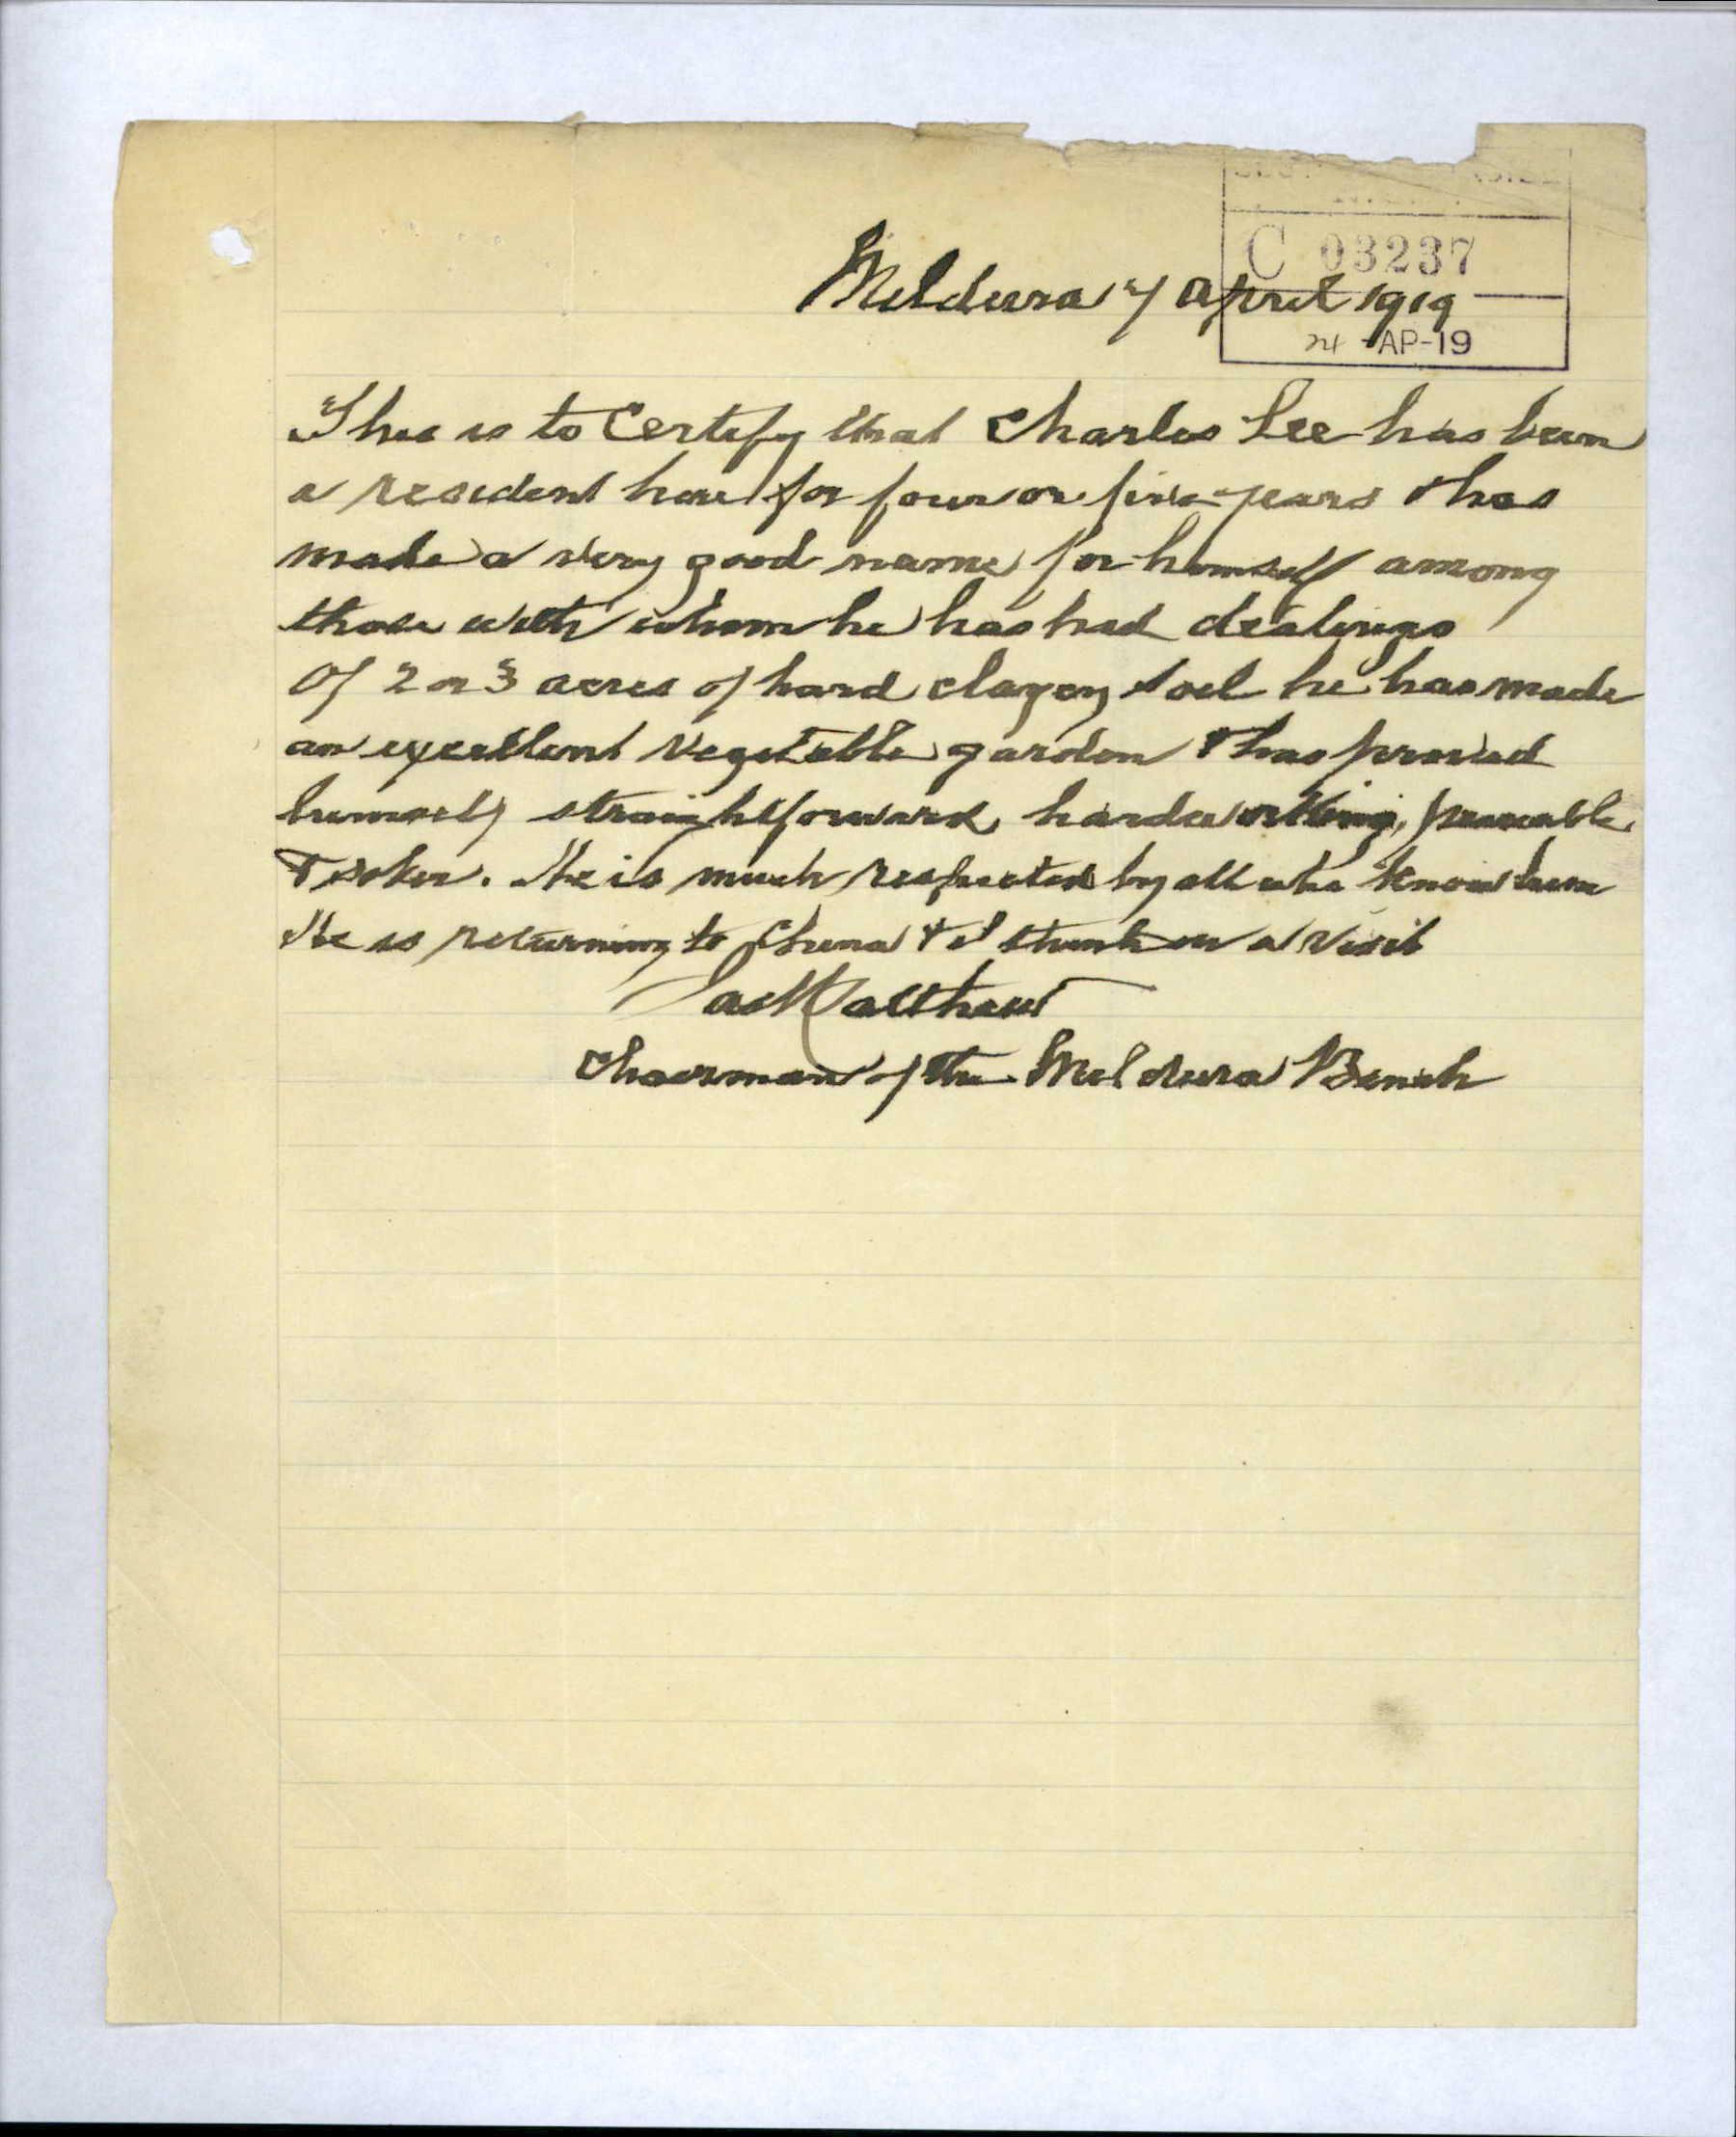 C 03237
Mildura 17 April 1919
24 AP-19
This is to Certify that Charles Lee has been
a resident here for four or five years & has
made a very good name for himself among
those with whom he has had dealings
Of 2 or 3 acres of hard clayey soil he has made
an excellent Vegetable garden & has proved
himself straightforward, hardworking, peaceable
& sober. He is much respected by all who know him
He is returning to China & I think on a visit
Jas Matthew
Chairman of the Mildura Bench